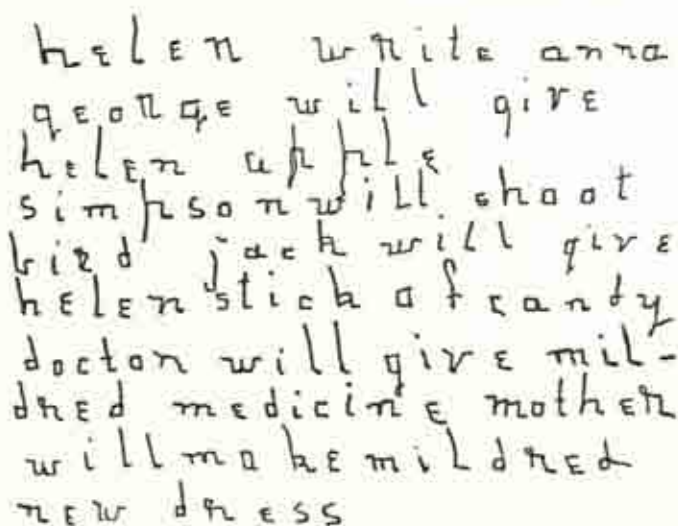 helen write anna
george will give
helen apple
simpson will shoot
bird jack will give
helen stick of candy
doctor will give mil-
dred medicine mother
will make mildred
new dress